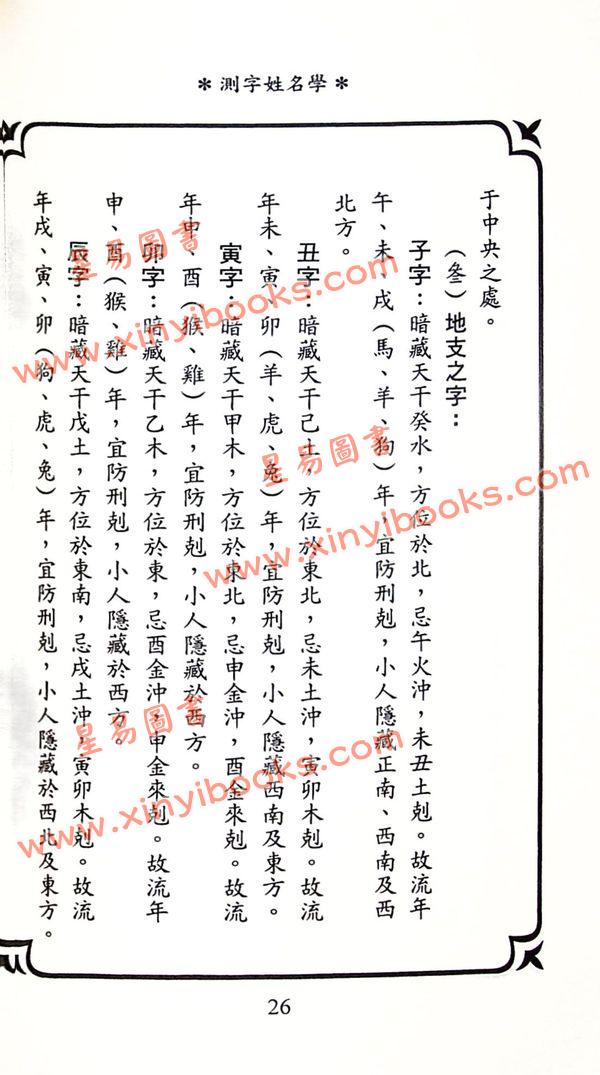 ＊測字姓名學＊
于中央之處。
（參）地支之字：
子字：暗藏天干癸水，方位於北，忌午火沖，未丑土剋。故流年
午、未、戌（馬、羊、狗）年，宜防刑剋，小人隱藏正南、西南及西
北方。
丑字：暗藏天干己土，方位於東北，忌未土沖，寅卯木剋。故流
年未、寅、卯（羊、虎、兔）年，宜防刑剋，小人隱藏西南及東方。
寅字：暗藏天干甲木，方位於東北，忌申金沖，酉金來剋。故流
年申、酉（猴、雞）年，宜防刑剋，小人隱藏於西方。
卯字：暗藏天干乙木，方位於東，忌酉金沖，申金來剋。故流年
申、酉（猴、雞）年，宜防刑剋，小人隱藏於西方。
辰字：暗藏天干戊土，方位於東南，忌戌土沖，寅卯木剋。故流
年戌、寅、卯（狗、虎、兔）年，宜防刑剋，小人隱藏於西北及東方。
26
星易圖書
www.xinyibooks.com
星易圖書
www.xinyibooks.com
星易圖書
www.xinyibooks.com